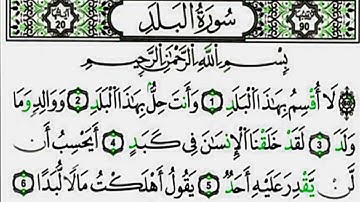 سُورَةُ الْبَلَدِ
بِسْمِ اللَّهِ الرَّحْمَٰنِ الرَّحِيمِ
لَا أُقْسِمُ بِهَٰذَا الْبَلَدِ 1 وَأَنتَ حِلٌّ بِهَٰذَا الْبَلَدِ 2 وَوَالِدٍ وَمَا
وَلَدَ 3 لَقَدْ خَلَقْنَا الْإِنسَٰنَ فِي كَبَدٍ 4 أَيَحْسَبُ أَن
لَّن يَقْدِرَ عَلَيْهِ أَحَدٌ 5 يَقُولُ أَهْلَكْتُ مَالًا لُّبَدًا 6